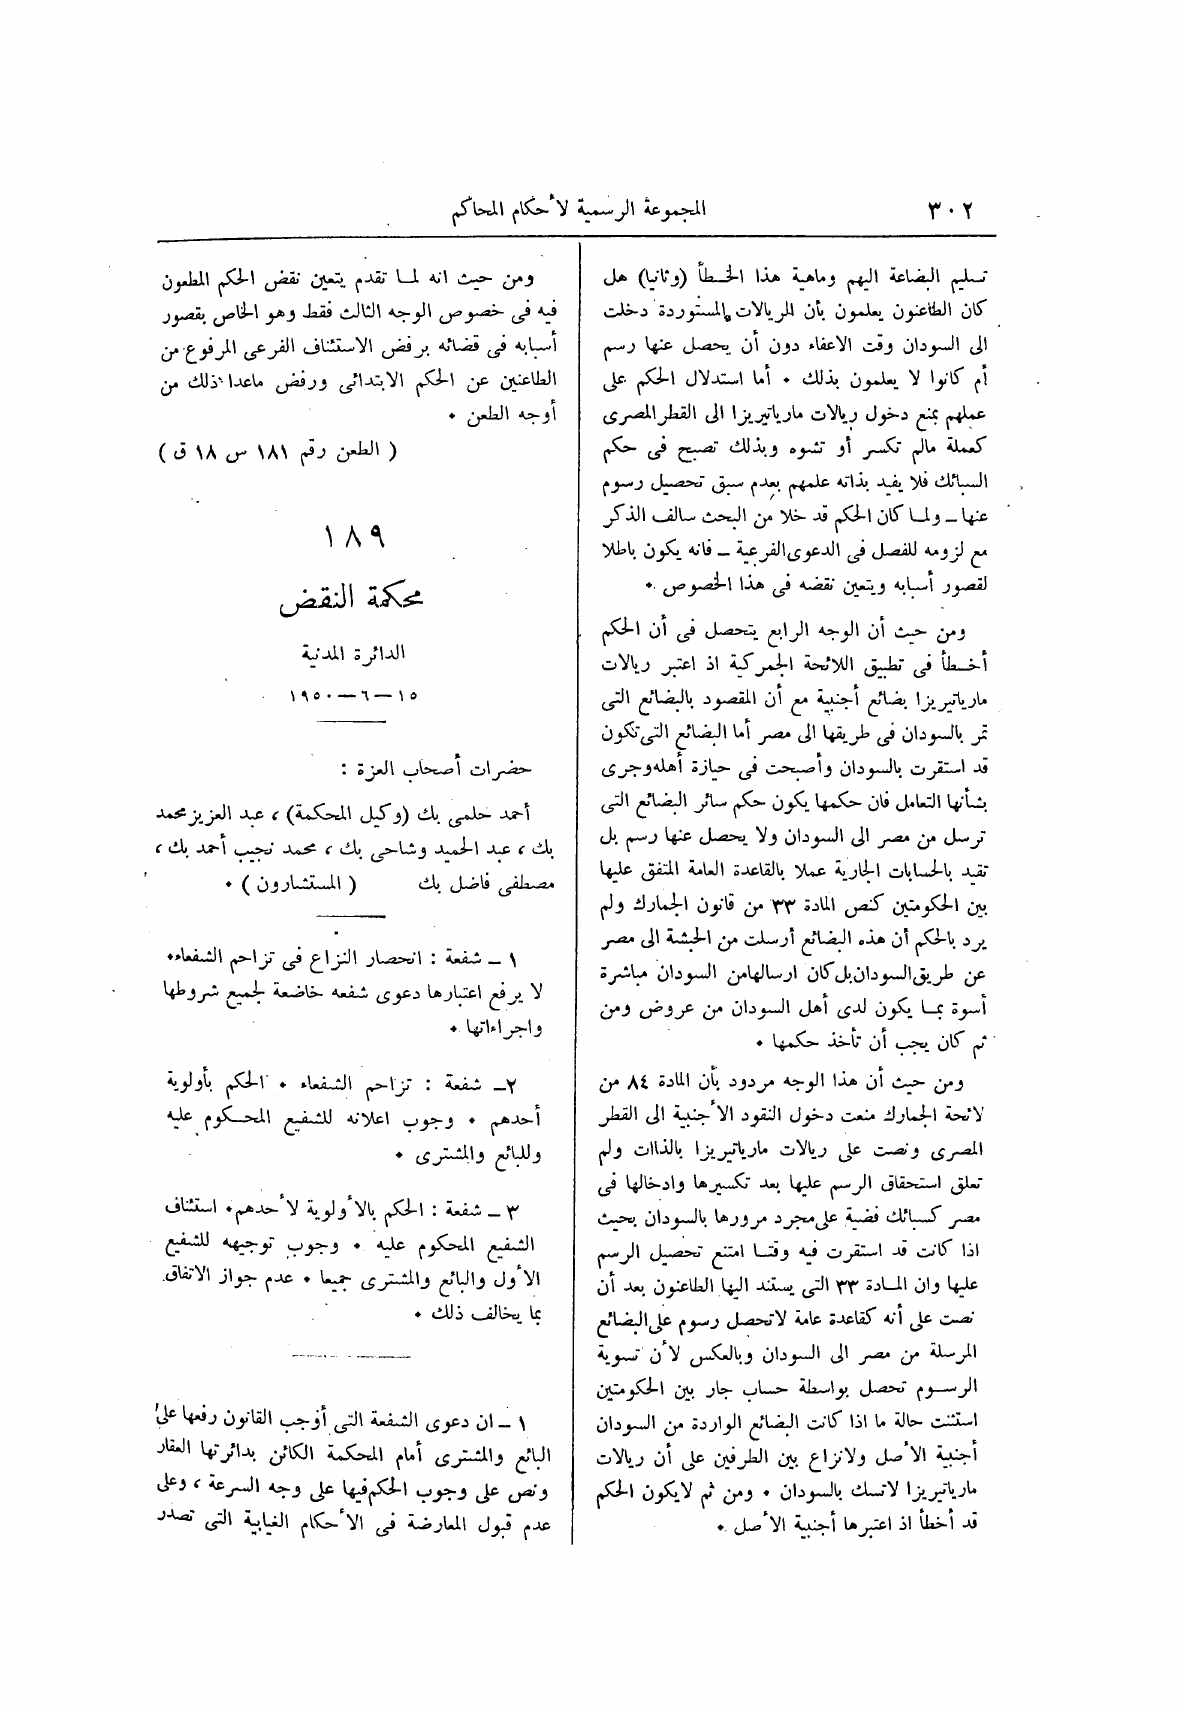 ٣٠٢
المجموعة الرسمية لأحكام المحاكم
تسليم البضاعة اليهم وماهية هذا الخطأ (وثانيا) هل
كان الطاعنون يعلمون بأن الريالات المستوردة دخلت
الى السودان وقت الاعفاء دون أن يحصل عنها رسم
أم كانوا لا يعلمون بذلك ٠ أما استدلال الحكم على
عملهم بمنع دخول ريالات مارياتيريزا الى القطر المصرى
كعملة مالم تكسر أو تشوه وبذلك تصبح فى حكم
السبائك فلا يفيد بذاته علمهم بعدم سبق تحصيل رسوم
عنها ــ ولما كان الحكم قد خلا من البحث سالف الذكر
مع لزومه للفصل فى الدعوى الفرعية ــ فانه يكون باطلا
لقصور أسبابه ويتعين نقضه فى هذا الخصوص ٠
ومن حيث أن الوجه الرابع يتحصل فى أن الحكم
أخطأ فى تطبيق اللائحة الجمركية اذ اعتبر ريالات
مارياتيريزا بضائع أجنبية مع أن المقصود بالبضائع التى
تمر بالسودان فى طريقها الى مصر أما البضائع التى تكون
قد استقرت بالسودان وأصبحت فى حيازة أهله وجرى
بشأنها التعامل فان حكمها يكون حكم سائر البضائع التى
ترسل من مصر الى السودان ولا يحصل عنها رسم بل
تقيد بالحسابات الجارية عملا بالقاعدة العامة المتفق عليها
بين الحكومتين كنص المادة ٣٣ من قانون الجمارك ولم
يرد بالحكم أن هذه البضائع أرسلت من الحبشة الى مصر
عن طريق السودان بل كان ارسالها من السودان مباشرة
أسوة بما يكون لدى أهل السودان من عروض ومن
ثم كان يجب أن تأخذ حكمها ٠
ومن حيث أن هذا الوجه مردود بأن المادة ٨٤ من
لائحة الجمارك منعت دخول النقود الأجنبية الى القطر
المصرى ونصت على ريالات مارياتيريزا بالذات ولم
تعلق استحقاق الرسم عليها بعد تكسيرها وادخالها فى
مصر كسبائك فضية على مجرد مرورها بالسودان بحيث
اذا كانت قد استقرت فيه وقتا امتنع تحصيل الرسم
عليها وان المادة ٣٣ التى يستند اليها الطاعنون بعد أن
نصت على أنه كقاعدة عامة لاتحصل رسوم على البضائع
المرسلة من مصر الى السودان وبالعكس لأن تسوية
الرسوم تحصل بواسطة حساب جار بين الحكومتين
استثنت حالة ما اذا كانت البضائع الواردة من السودان
أجنبية الأصل ولانزاع بين الطرفين على أن ريالات
مارياتيريزا لاتسك بالسودان ٠ ومن ثم لايكون الحكم
قد أخطأ اذ اعتبرها أجنبية الأصل ٠
ومن حيث انه لما تقدم يتعين نقض الحكم المطعون
فيه فى خصوص الوجه الثالث فقط وهو الخاص بقصور
أسبابه فى قضائه برفض الاستئناف الفرعى المرفوع من
الطاعنين عن الحكم الابتدائى ورفض ماعدا ذلك من
أوجه الطعن ٠
( الطعن رقم ١٨١ س ١٨ ق )
١٨٩
محكمة النقض
الدائرة المدنية
١٥ – ٦ – ١٩٥٠
حضرات أصحاب العزة :
أحمد حلمى بك (وكيل المحكمة) ، عبد العزيز محمد
بك ، عبد الحميد وشاحى بك ، محمد نجيب أحمد بك ،
مصطفى فاضل بك ( المستشارون ) ٠
١ ــ شفعة : انحصار النزاع فى تزاحم الشفعاء٠
لا يرفع اعتبارها دعوى شفعه خاضعة لجميع شروطها
واجراءاتها ٠
٢ــ شفعة : تزاحم الشفعاء ٠ الحكم بأولوية
أحدهم ٠ وجوب اعلانه للشفيع المحكوم عليه
وللبائع والمشترى ٠
٣ ــ شفعة : الحكم بالأولوية لأحدهم٠ استئناف
الشفيع المحكوم عليه ٠ وجوب توجيهه للشفيع
الأول والبائع والمشترى جميعا ٠ عدم جواز الاتفاق
بما يخالف ذلك ٠
١ ــ ان دعوى الشفعة التى أوجب القانون رفعها على
البائع والمشترى أمام المحكمة الكائن بدائرتها العقار
ونص على وجوب الحكم فيها على وجه السرعة ، وعلى
عدم قبول المعارضة فى الأحكام الغيابية التى تصدر